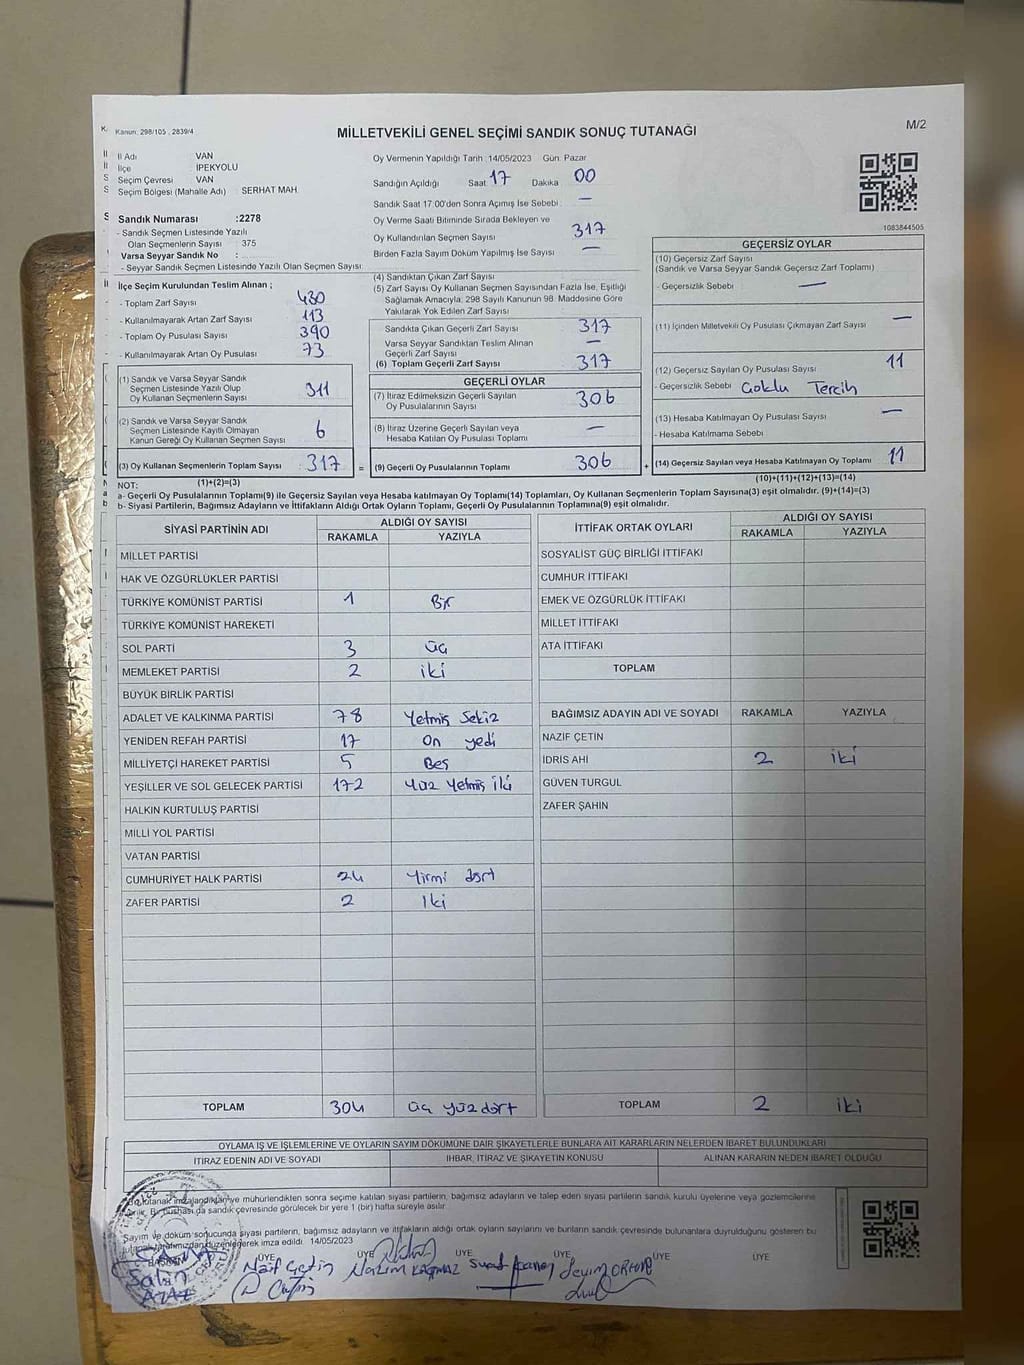 Kanun: 298/105 , 2839/4
MİLLETVEKİLİ GENEL SEÇİMİ SANDIK SONUÇ TUTANAĞI
M/2
İl Adı VAN
İlçe İPEKYOLU
Seçim Çevresi VAN
Seçim Bölgesi (Mahalle Adı) : SERHAT MAH.
Sandık Numarası :2278
- Sandık Seçmen Listesinde Yazılı
Olan Seçmenlerin Sayısı : 375
Varsa Seyyar Sandık No :
- Seyyar Sandık Seçmen Listesinde Yazılı Olan Seçmen Sayısı:
Oy Vermenin Yapıldığı Tarih :14/05/2023 Gün: Pazar
Sandığın Açıldığı Saat 17 Dakika 00
Sandık Saat 17:00'den Sonra Açımış İse Sebebi : —
Oy Verme Saati Bitiminde Sırada Bekleyen ve
Oy Kullandırılan Seçmen Sayısı 317
Birden Fazla Sayım Döküm Yapılmış İse Sayısı —
1083844505
İlçe Seçim Kurulundan Teslim Alınan ;
- Toplam Zarf Sayısı 430
- Kullanılmayarak Artan Zarf Sayısı 113
- Toplam Oy Pusulası Sayısı 390
- Kullanılmayarak Artan Oy Pusulası 73
(1) Sandık ve Varsa Seyyar Sandık
Seçmen Listesinde Yazılı Olup
Oy Kullanan Seçmenlerin Sayısı 311
(2) Sandık ve Varsa Seyyar Sandık
Seçmen Listesinde Kayıtlı Olmayan
Kanun Gereği Oy Kullanan Seçmen Sayısı 6
(3) Oy Kullanan Seçmenlerin Toplam Sayısı 317 =
(1)+(2)=(3)
(4) Sandıktan Çıkan Zarf Sayısı
(5) Zarf Sayısı Oy Kullanan Seçmen Sayısından Fazla İse, Eşitliği
Sağlamak Amacıyla, 298 Sayılı Kanunun 98. Maddesine Göre
Yakılarak Yok Edilen Zarf Sayısı
Sandıkta Çıkan Geçerli Zarf Sayısı 317
Varsa Seyyar Sandıktan Teslim Alınan
Geçerli Zarf Sayısı —
(6) Toplam Geçerli Zarf Sayısı 317
GEÇERLİ OYLAR
(7) İtiraz Edilmeksizin Geçerli Sayılan
Oy Pusulalarının Sayısı 306
(8) İtiraz Üzerine Geçerli Sayılan veya
Hesaba Katılan Oy Pusulası Toplamı —
(9) Geçerli Oy Pusulalarının Toplamı 306 +
GEÇERSİZ OYLAR
(10) Geçersiz Zarf Sayısı
(Sandık ve Varsa Seyyar Sandık Geçersiz Zarf Toplamı)
- Geçersizlik Sebebi —
(11) İçinden Milletvekili Oy Pusulası Çıkmayan Zarf Sayısı —
(12) Geçersiz Sayılan Oy Pusulası Sayısı 11
- Geçersizlik Sebebi Çoklu Tercih
(13) Hesaba Katılmayan Oy Pusulası Sayısı —
- Hesaba Katılmama Sebebi
(14) Geçersiz Sayılan veya Hesaba Katılmayan Oy Toplamı 11
(10)+(11)+(12)+(13)=(14)
NOT:
a- Geçerli Oy Pusulalarının Toplamı(9) ile Geçersiz Sayılan veya Hesaba katılmayan Oy Toplamı(14) Toplamları, Oy Kullanan Seçmenlerin Toplam Sayısına(3) eşit olmalıdır. (9)+(14)=(3)
b- Siyasi Partilerin, Bağımsız Adayların ve İttifakların Aldığı Ortak Oyların Toplamı, Geçerli Oy Pusulalarının Toplamına(9) eşit olmalıdır.
SİYASİ PARTİNİN ADI
ALDIĞI OY SAYISI
RAKAMLA YAZIYLA
MİLLET PARTİSİ
HAK VE ÖZGÜRLÜKLER PARTİSİ
TÜRKİYE KOMÜNİST PARTİSİ 1 Bir
TÜRKİYE KOMÜNİST HAREKETİ
SOL PARTİ 3 üç
MEMLEKET PARTİSİ 2 iki
BÜYÜK BİRLİK PARTİSİ
ADALET VE KALKINMA PARTİSİ 78 Yetmiş Sekiz
YENİDEN REFAH PARTİSİ 17 On yedi
MİLLİYETÇİ HAREKET PARTİSİ 5 Beş
YEŞİLLER VE SOL GELECEK PARTİSİ 172 Yüz Yetmiş iki
HALKIN KURTULUŞ PARTİSİ
MİLLİ YOL PARTİSİ
VATAN PARTİSİ
CUMHURİYET HALK PARTİSİ 24 Yirmi dört
ZAFER PARTİSİ 2 İki
TOPLAM 304 üç yüz dört
İTTİFAK ORTAK OYLARI
ALDIĞI OY SAYISI
RAKAMLA YAZIYLA
SOSYALİST GÜÇ BİRLİĞİ İTTİFAKI
CUMHUR İTTİFAKI
EMEK VE ÖZGÜRLÜK İTTİFAKI
MİLLET İTTİFAKI
ATA İTTİFAKI
TOPLAM
BAĞIMSIZ ADAYIN ADI VE SOYADI RAKAMLA YAZIYLA
NAZİF ÇETİN
İDRİS AHİ 2 iki
GÜVEN TURGUL
ZAFER ŞAHİN
TOPLAM 2 iki
OYLAMA İŞ VE İŞLEMLERİNE VE OYLARIN SAYIM DÖKÜMÜNE DAİR ŞİKAYETLERLE BUNLARA AİT KARARLARIN NELERDEN İBARET BULUNDUKLARI
İTİRAZ EDENİN ADI VE SOYADI İHBAR, İTİRAZ VE ŞİKAYETİN KONUSU ALINAN KARARIN NEDEN İBARET OLDUĞU
tutanak imzalandıktan ve mühürlendikten sonra seçime katılan siyasi partilerin, bağımsız adayların ve talep eden siyasi partilerin sandık kurulu üyelerine veya gözlemcilerine
verilir. Bir nüshası da sandık çevresinde görülecek bir yere 1 (bir) hafta süreyle asılır.
Sayım ve döküm sonucunda siyasi partilerin, bağımsız adayların ve ittifakların aldığı ortak oyların sayılarını ve bunların sandık çevresinde bulunanlara duyrulduğunu gösteren bu
tutanak tarafımızdan düzenlenerek imza edildi. 14/05/2023
BAŞKAN ÜYE ÜYE ÜYE ÜYE ÜYE ÜYE
Nazif Çetin Nazım KAÇMAZ Suat